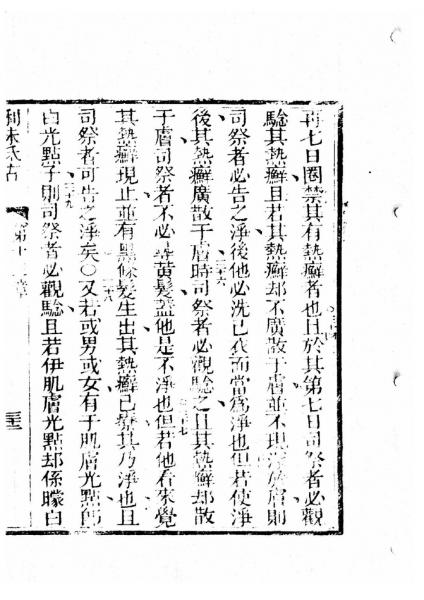 再七日圈禁其有熱癬者也且於其第七日司祭者必觀
驗其熱癬且若其熱癬却不廣散于膚並不現深於膚則
三十五
司祭者必告之淨後他必洗己衣而當為淨也但若使淨
三十六
後其熱癬廣散于膚時司祭者必觀驗之且其熱癬却散
于膚司祭者不必尋黃髮蓋他是不淨也但若他看來覺
三十七
其熱癬現止並有黑髮生出其熱癬已痊其乃淨也且
司祭者可告之淨矣○又若或男或女有于肌膚光點即
三十八
白光點子則司祭者必觀驗且若伊肌膚光點却係矇白
三十九
利未氏古 第十三章